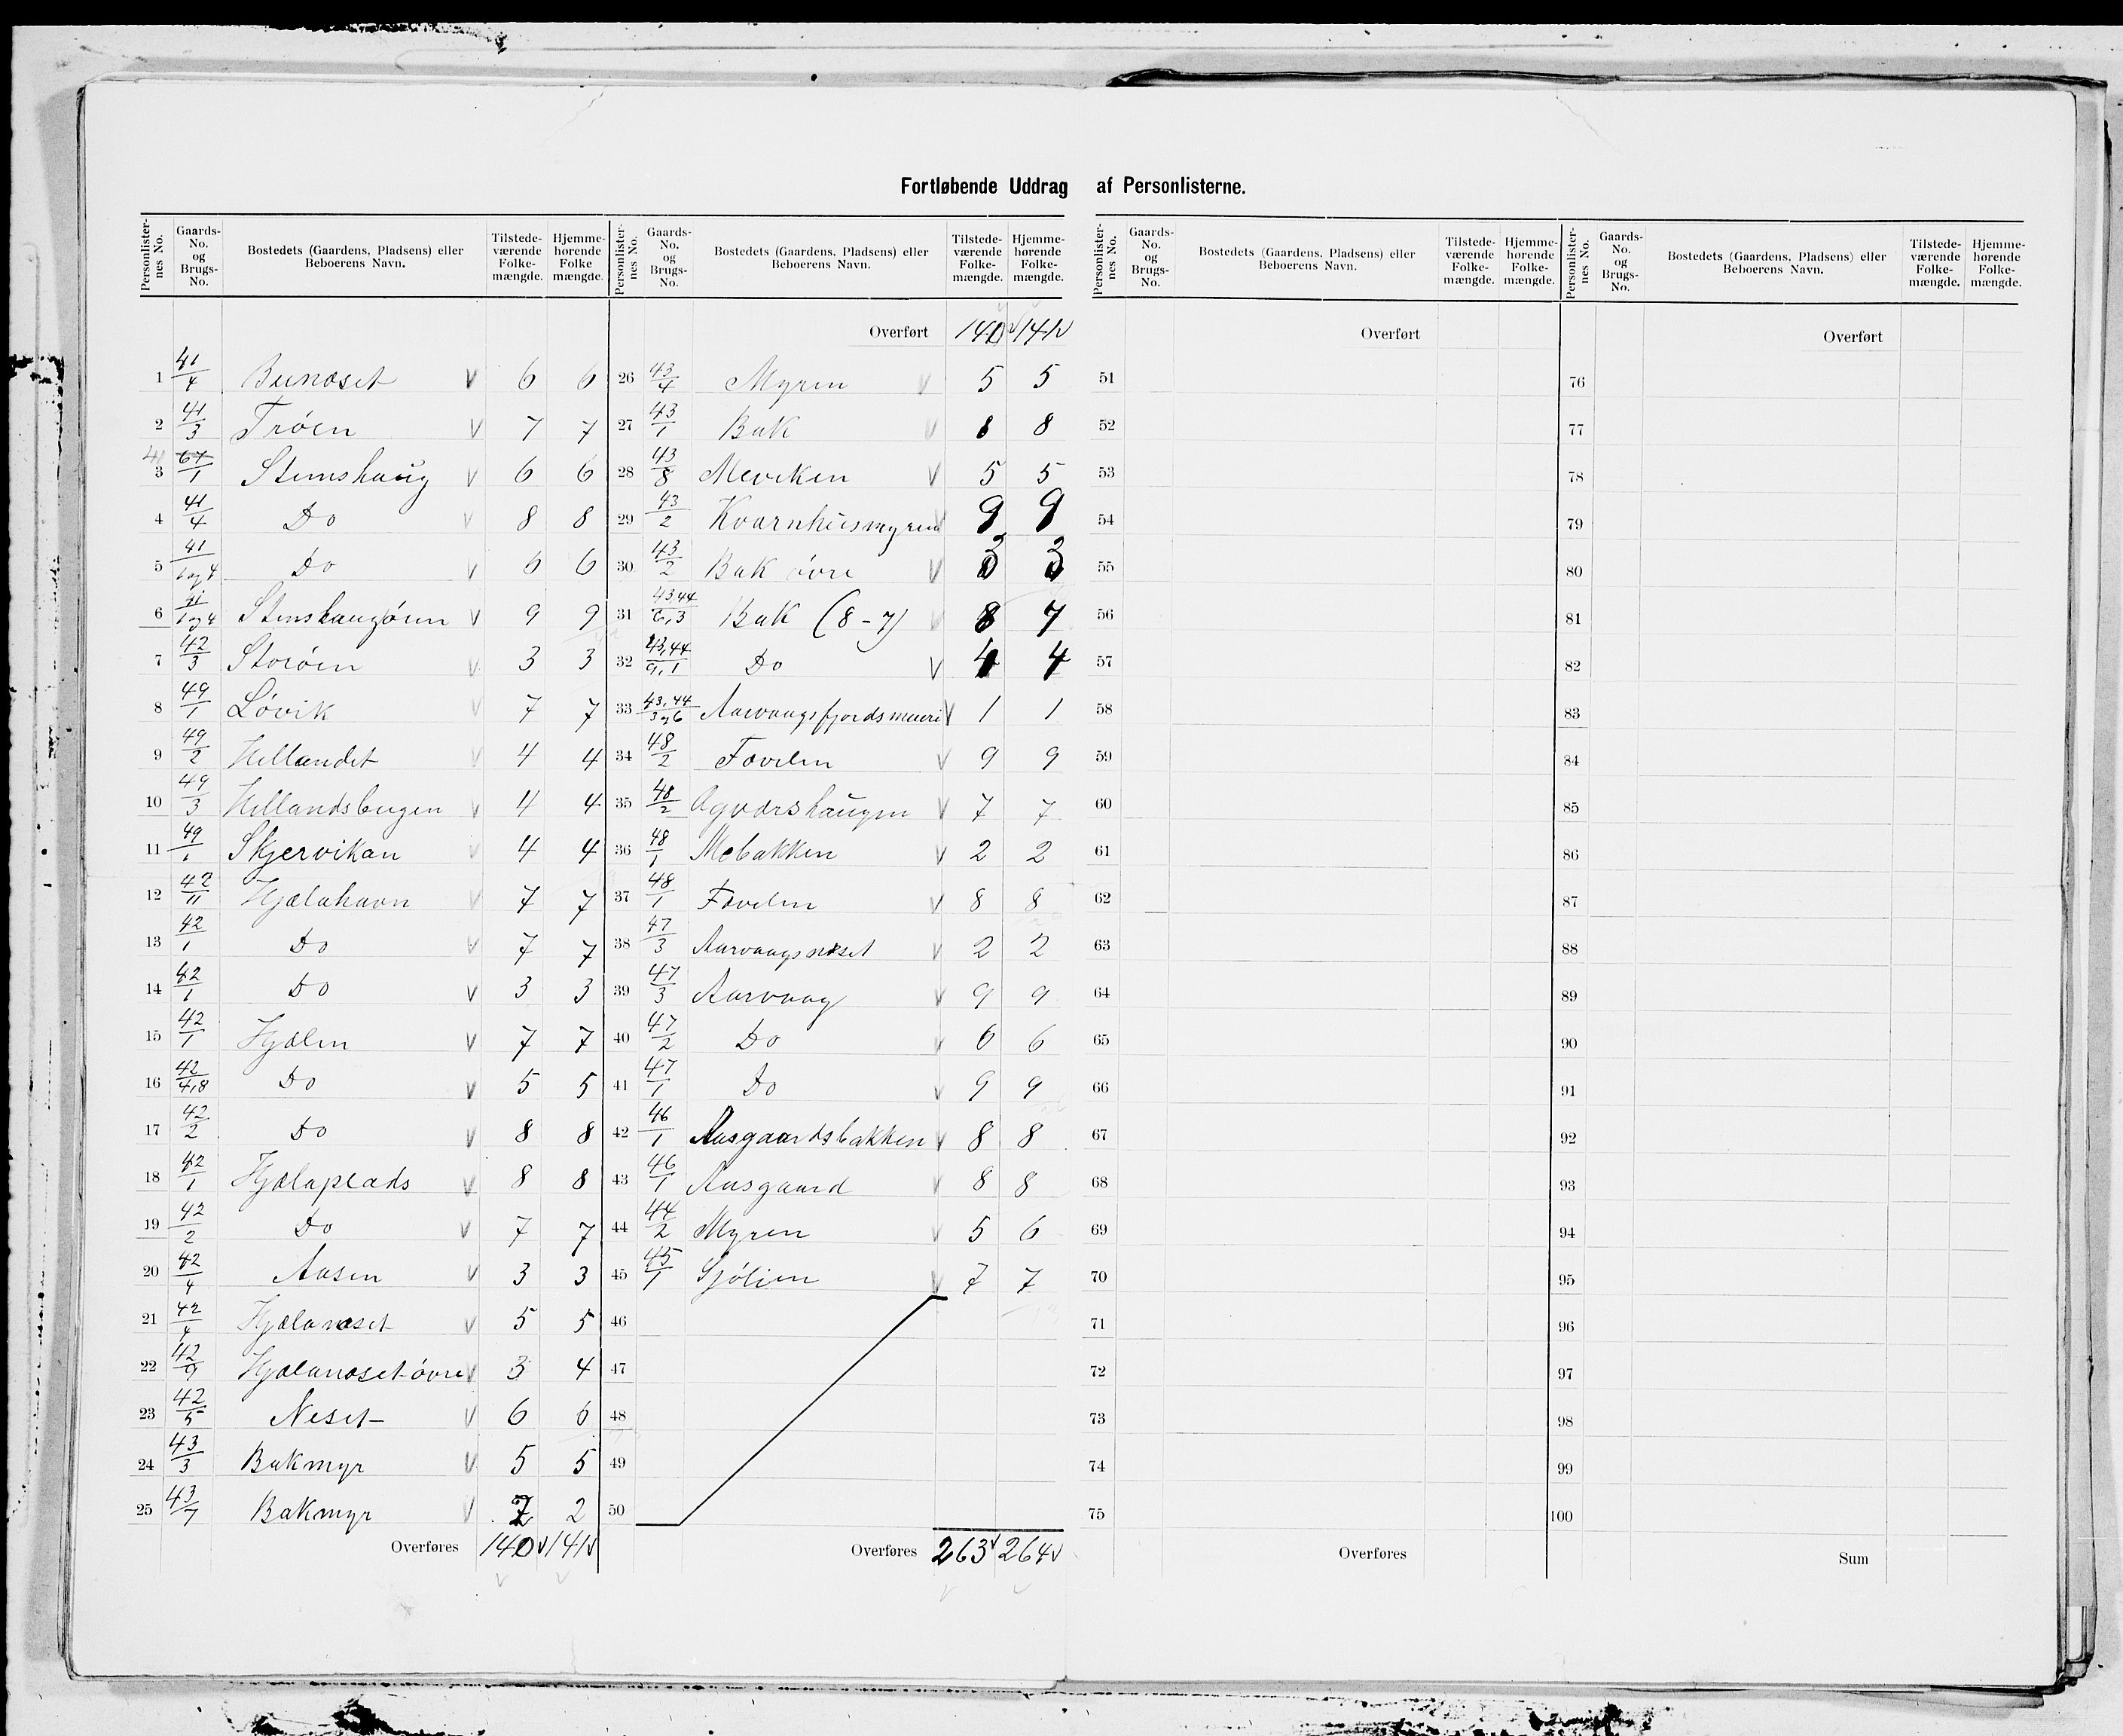 Fortløbende Uddrag af Personlisterne.
Personlisternes No. Gaards-No. og Brugs-No. Bostedets (Gaardens, Pladsens) eller Beboerens Navn. Tilstedeværende Folkemængde. Hjemmehørende Folkemængde.
1 41/4 Bunæset V 6 6
2 41/3 Trøen V 7 7
3 41 67/1 Stemshaug V 6 6
4 41/4 Do V 8 8
5 41/1 og 4 Do V 6 6
6 41/1 og 4 Stemshaugøren V 9 9
7 42/3 Storøen V 3 3
8 49/1 Løvik V 7 7
9 49/2 Hellandet V 4 4
10 49/3 Hellandsbugen V 4 4
11 49/1 Skjervikan V 4 4
12 42/11 Hjælahavn V 7 7
13 42/1 Do V 7 7
14 42/1 Do V 3 3
15 42/1 Hjælen V 7 7
16 42/4,8 Do V 5 5
17 42/2 Do V 8 8
18 42/1 Hjælaplads V 8 8
19 42/2 Do V 7 7
20 42/4 Aasen V 3 3
21 42/4 Hjælanæset V 5 5
22 42/9 Hjælanæset øvre V 3 4
23 42/5 Neset V 6 6
24 43/3 Bakmyr V 5 5
25 43/7 Bakmyr V 2 2
Overføres 140 V 141 V
Personlisternes No. Gaards-No. og Brugs-No. Bostedets (Gaardens, Pladsens) eller Beboerens Navn. Tilstedeværende Folkemængde. Hjemmehørende Folkemængde.
Overført 140 V 141 V
26 43/4 Myren V 5 5
27 43/1 Bak V 8 8
28 43/8 Meviken V 5 5
29 43/2 Kvarnhusmyren V 9 9
30 43/2 Bak øvre V 3 3
31 43,44/6,3 Bak (8-7) V 8 7
32 43,44/9,1 Do V 4 4
33 43,44/3 og 6 Aarvaagsfjordsmeieri V 1 1
34 48/2 Fævelen V 9 9
35 48/2 Agværshaugen V 7 7
36 48/1 Mebakken V 2 2
37 48/1 Fævelen V 8 8
38 47/3 Aarvaagsnæset V 2 2
39 47/3 Aarvaag V 9 9
40 47/2 Do V 6 6
41 47/1 Do V 9 9
42 46/1 Aasgaardsbakken V 8 8
43 46/1 Aasgaard V 8 8
44 44/2 Myren V 5 6
45 45/1 Sjølien V 7 7
46
47
48
49
50
Overføres 263 V 264 V
Personlisternes No. Gaards-No. og Brugs-No. Bostedets (Gaardens, Pladsens) eller Beboerens Navn. Tilstedeværende Folkemængde. Hjemmehørende Folkemængde.
Overført
51
52
53
54
55
56
57
58
59
60
61
62
63
64
65
66
67
68
69
70
71
72
73
74
75
Overføres
Personlisternes No. Gaards-No. og Brugs-No. Bostedets (Gaardens, Pladsens) eller Beboerens Navn. Tilstedeværende Folkemængde. Hjemmehørende Folkemængde.
Overført
76
77
78
79
80
81
82
83
84
85
86
87
88
89
90
91
92
93
94
95
96
97
98
99
100
Sum